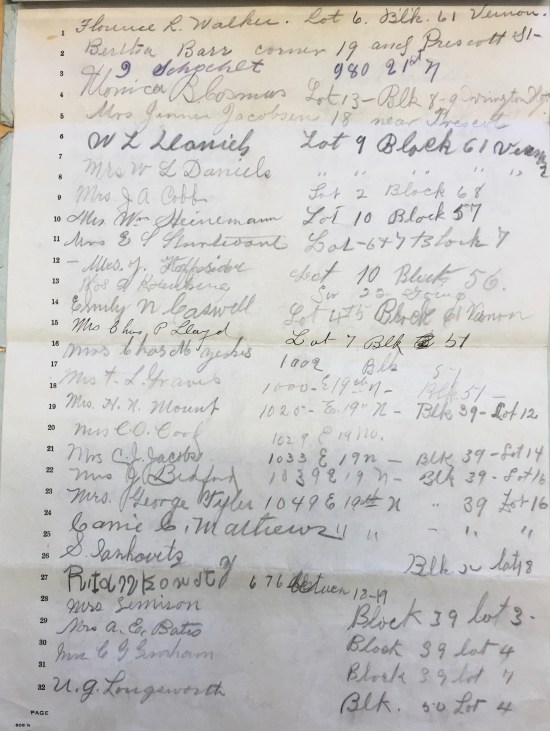 1 Florence L. Walker. Lot 6. Blk. 61 Vernon.
2 Bertha Barr corner 19 and Prescott St-
3 Schochet 980 21st N
4 Monica B Lot 13 - Blk 8-9 Irvington
5 Mrs Jacobsen 18 near Prescot
6 W L Daniels Lot 9 Block 61 Vernon
7
8 Mrs W L Daniels " " " " "
9 Mrs. J A Cobb Lot 2 Block 68
10 Mrs. Wm Heinemann Lot 10 Block 57
11 Mrs E S Sturtevant Lot - 6+7 Block 7
12 - Mrs. J. Lot 10 Block 56.
13
14 Emily N Caswell Lot 4+5 Block 61 Vernon
15 Mrs Chas. P Lloyd Lot 7 Blk 51
16
17 Mrs Chas M 1002 Blk 51
18 Mrs F. L. Graves 1000 - E 19th N - Blk 51 -
19 Mrs. H. N. Mount 1025 - E. 19" N - Blk 39 - Lot 12
20 Mrs C. O. Cook 1029 E 19 No.
21 Mrs C. J. Jacobs 1033 E 19 N - Blk 39 - Lot 14
22 Mrs J. Bedford 1039 E 19 N - Blk 39 - Lot 16
23 Mrs. George Tyler 1049 E 19th N " 39 Lot 16
24
25 Carrie C. Mathews " " - " "
26 S. Sankovitz Blk lot 8
27 676 between 12-19
28 Mrs Simison Block 39 lot 3-
29 Mrs A. E. Bates Block 39 lot 4
30 Mrs C G Graham Block 39 lot 7
31
32 U. G. Longsworth Blk. 50 Lot 4
PAGE